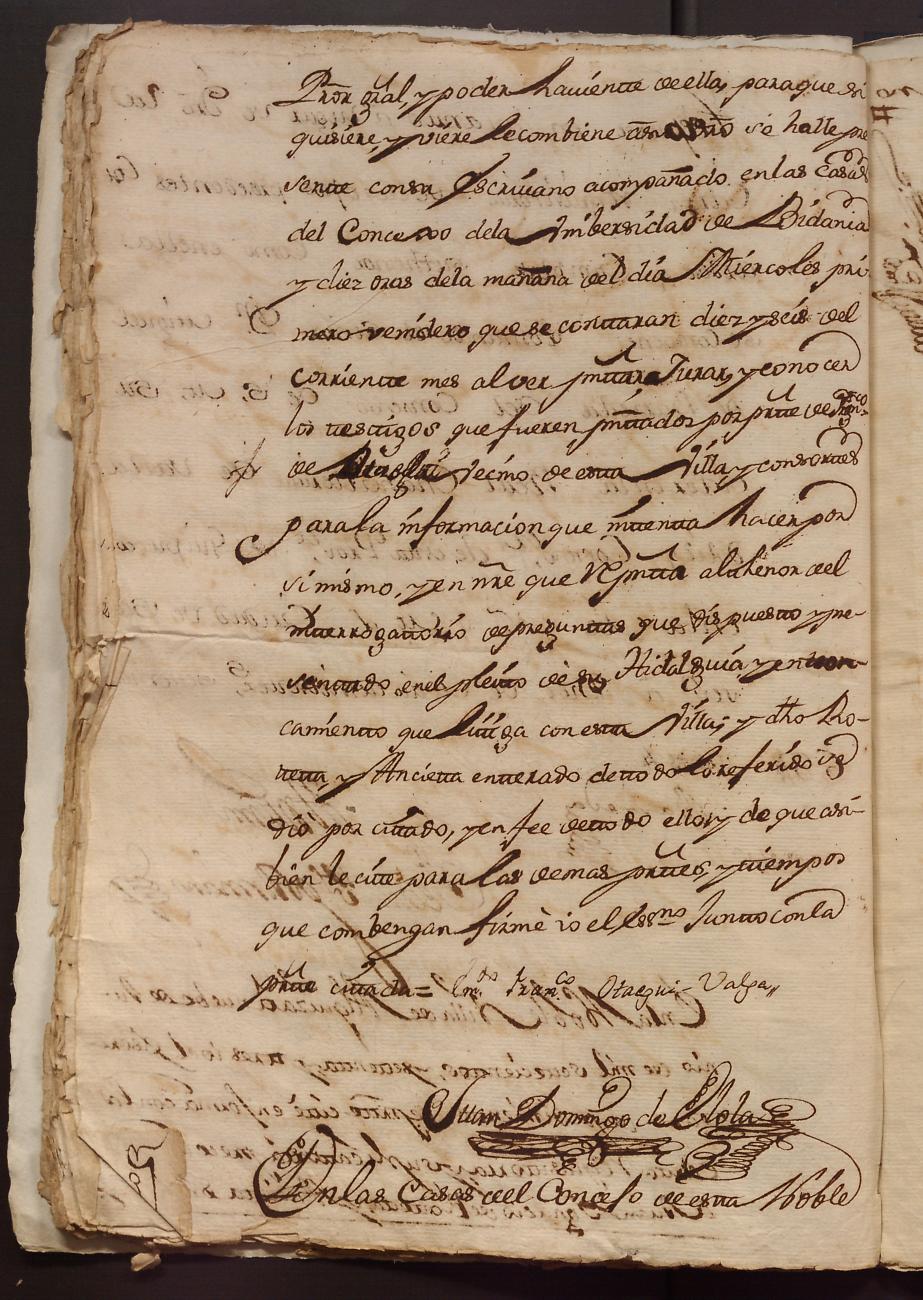 Pror gral, y poder haviente de ella, para que si
quisiere y viere le combiene se halle pre
sente con su Escrivano acompañado en las Casas
del Concexo de la Unibersidad de Bidania
y diez oras de la mañana del dia Miercoles pri
mero venidero que se contaran diez y seis del
corriente mes al ver pntar Jurar, y conocer
los testigos que fueren pntados por parte de Franco
de vecino de esta Villa y consortes
para la informacion que intenta hacer por
si mismo, y en nre que Repnta al thenor del
interrogatorio de preguntas que dispuesto y pre-
sentado en el pleito de su Hidalguia y entron-
camiento que litiga con esta Villa; y dho Ro-
teta, y Ancieta enterado de todo lo referido se
dio por citado, y en fee de todo ello, y de que asi-
bien le cite para las demas partes, y tiempos
que combengan firmè io el Essno Junto con la
parte citada = Emdo Franco Otaegui = Valga,,
Juan Domingo de Elola
En las Casas del Concejo de esta Noble